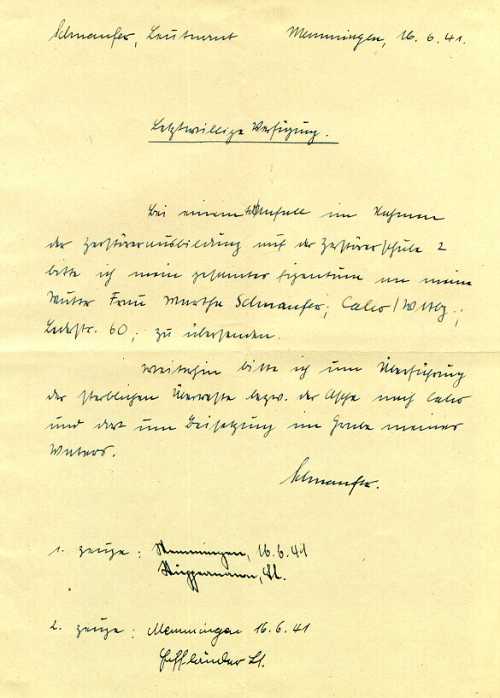 Schnaufer, Leutnant Memmingen, 16.6.41.
Letztwillige Verfügung.
Bei einem Unfall im Rahmen
der Zerstörerausbildung auf der Zerstörerschule 2
bitte ich mein gesamtes Eigentum an meine
Mutter Frau Martha Schnaufer, Calw/Wttbg.,
Lederstr. 60, zu übersenden.
Weiterhin bitte ich um Überführung
der sterblichen Überreste bezw. der Asche nach Calw
und dort um Beisetzung im Grabe meines
Vaters.
Schnaufer.
1. Zeuge: Memmingen, 16.6.41
Lt.
2. Zeuge: Memmingen 16.6.41
Lt.